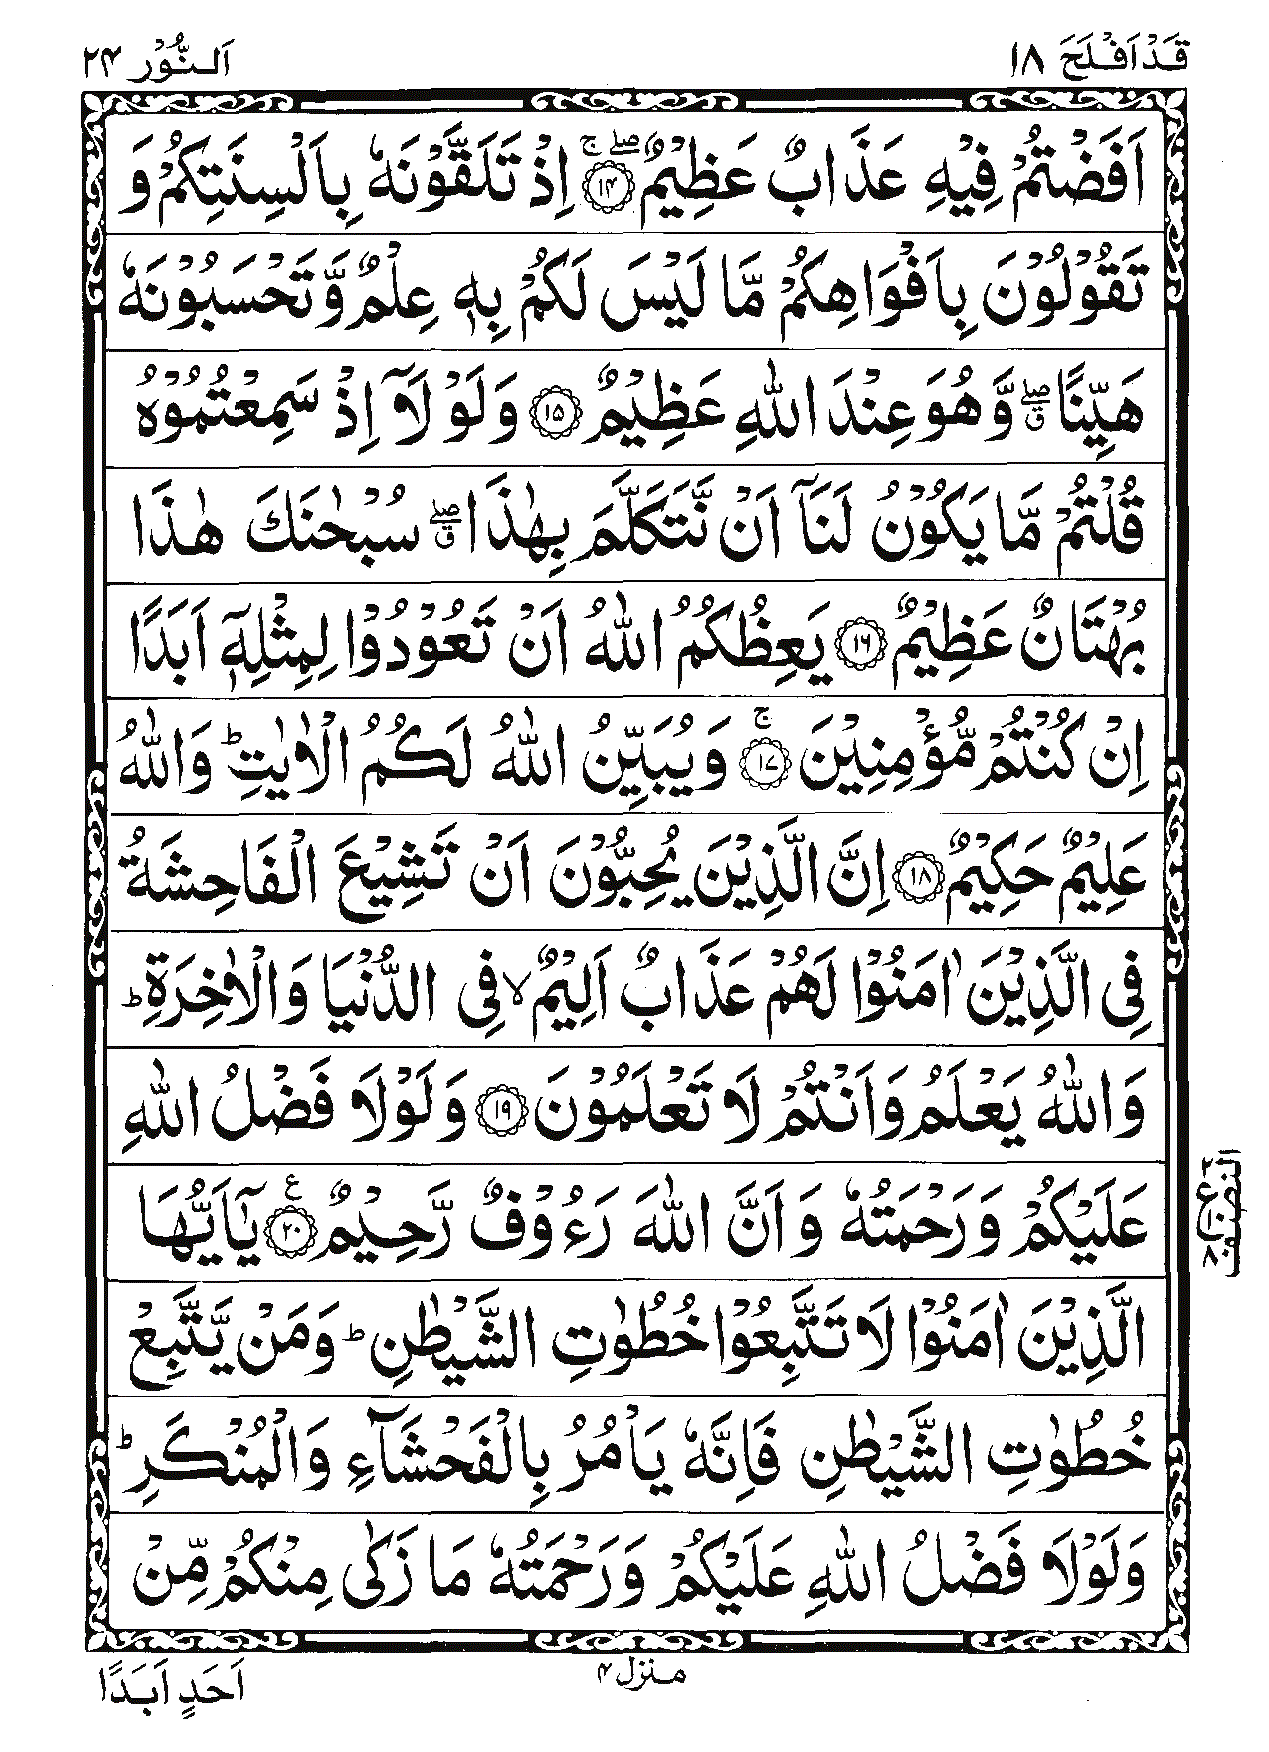 قَدْ اَفْلَحَ ١٨
اَلنُّوْر ٢٤
اَفَضْتُمْ فِيْهِ عَذَابٌ عَظِيْمٌ ۖۚ ﴿١٤﴾ اِذْ تَلَقَّوْنَهٗ بِاَلْسِنَتِكُمْ وَ
تَقُوْلُوْنَ بِاَفْوَاهِكُمْ مَّا لَيْسَ لَكُمْ بِهٖ عِلْمٌ وَّتَحْسَبُوْنَهٗ
هَيِّنًا ۖۗ وَّهُوَ عِنْدَ اللّٰهِ عَظِيْمٌ ﴿١٥﴾ وَلَوْلَاۤ اِذْ سَمِعْتُمُوْهُ
قُلْتُمْ مَّا يَكُوْنُ لَنَاۤ اَنْ نَّتَكَلَّمَ بِهٰذَا ۖۗ سُبْحٰنَكَ هٰذَا
بُهْتَانٌ عَظِيْمٌ ﴿١٦﴾ يَعِظُكُمُ اللّٰهُ اَنْ تَعُوْدُوْا لِمِثْلِهٖۤ اَبَدًا
اِنْ كُنْتُمْ مُّؤْمِنِيْنَ ۚ ﴿١٧﴾ وَيُبَيِّنُ اللّٰهُ لَكُمُ الْاٰيٰتِ ؕ وَاللّٰهُ
عَلِيْمٌ حَكِيْمٌ ﴿١٨﴾ اِنَّ الَّذِيْنَ يُحِبُّوْنَ اَنْ تَشِيْعَ الْفَاحِشَةُ
فِى الَّذِيْنَ اٰمَنُوْا لَهُمْ عَذَابٌ اَلِيْمٌ ۙ فِى الدُّنْيَا وَالْاٰخِرَةِ ؕ
وَاللّٰهُ يَعْلَمُ وَاَنْتُمْ لَا تَعْلَمُوْنَ ﴿١٩﴾ وَلَوْلَا فَضْلُ اللّٰهِ
عَلَيْكُمْ وَرَحْمَتُهٗ وَاَنَّ اللّٰهَ رَءُوْفٌ رَّحِيْمٌ ﴿٢٠﴾ ع يٰۤاَيُّهَا
الَّذِيْنَ اٰمَنُوْا لَا تَتَّبِعُوْا خُطُوٰتِ الشَّيْطٰنِ ؕ وَمَنْ يَّتَّبِعْ
خُطُوٰتِ الشَّيْطٰنِ فَاِنَّهٗ يَاْمُرُ بِالْفَحْشَآءِ وَالْمُنْكَرِ ؕ
وَلَوْلَا فَضْلُ اللّٰهِ عَلَيْكُمْ وَرَحْمَتُهٗ مَا زَكٰى مِنْكُمْ مِّنْ
النصف
ع
٢
١٠
٨
منزل ٤
اَحَدٍ اَبَدًا